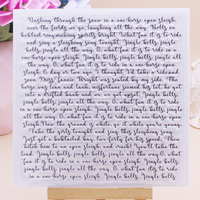 Dashing through the snow in a one-horse open sleigh,
over the fields we go, laughing all the way. Bells on
bobtailed ring, making spirits bright. What fun it is to ride
and sing a sleighing song tonight. Jingle bells, jingle
bells, jingle all the way. O, what fun it is to ride in a
one-horse open sleigh. Jingle bells, jingle bells, jingle all
the way. O, what fun it is to ride in a one-horse open
sleigh. A day or two ago, I thought I'd take a ride and
soon Miss Fannie Bright was seated by my side. The
horse was lean and lank, misfortune seemed his lot, he got
into a drifted bank and we we got upsot. Jingle bells,
jingle bells, jingle all the way. O, what fun it is to ride
in a one-horse open sleigh. Jingle bells, jingle bells,
jingle all the way. O, what fun it is to ride in a one-horse
open sleigh. Now the ground is white, go it while you're young.
Take the girls tonight and sing this sleighing song.
Just get a bobtailed bay, two forty for his speed. Then
hitch him to an open sleigh and crack! You'll take the
lead. Jingle bells, jingle bells, jingle all the way. O, what
fun it is to ride in a one-horse open sleigh. Jingle bells,
jingle bells, jingle all the way. O, what fun it is to ride
in a one-horse open sleigh. Jingle bells, jingle bells.